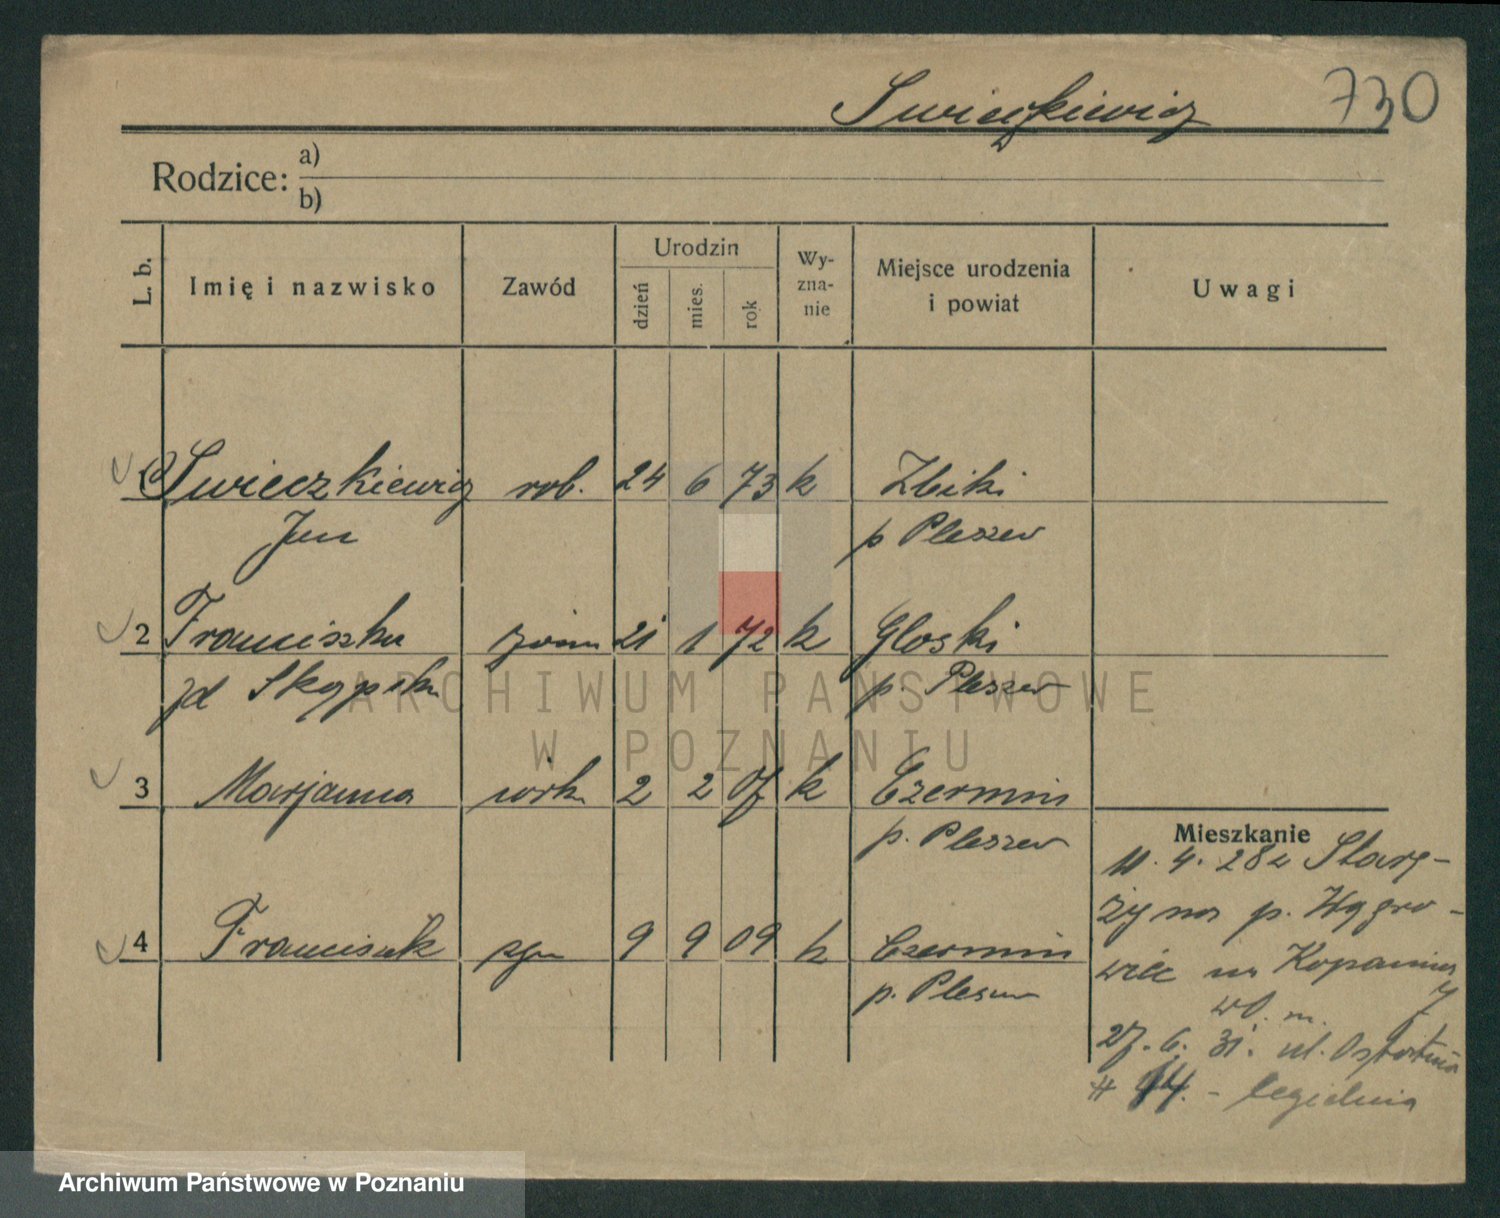 Swieczkiewicz 730
Rodzice: a)
b)
L. b. Imię i nazwisko Zawód Urodzin dzień mies. rok Wy-zna-nie Miejsce urodzenia i powiat Uwagi
Swieczkiewicz rob. 24 6 73 k Zbiki
Jan p Pleszew
2 Franciszka żona 21 1 72 k Gloski
p. Pleszew
3 Marjanna córka 2 2 07 k Czermin
p. Pleszew
Mieszkanie
4. 28 z Starę-
żyna p. Wągro-
4 Franciszek syn 9 9 09 k Czermin
wiec na Kopanina
p. Pleszew
7
wł. m.
27. 6. 31. ul.
14. - cegielnia
ARCHIWUM PAŃSTWOWE
W POZNANIU
Archiwum Państwowe w Poznaniu